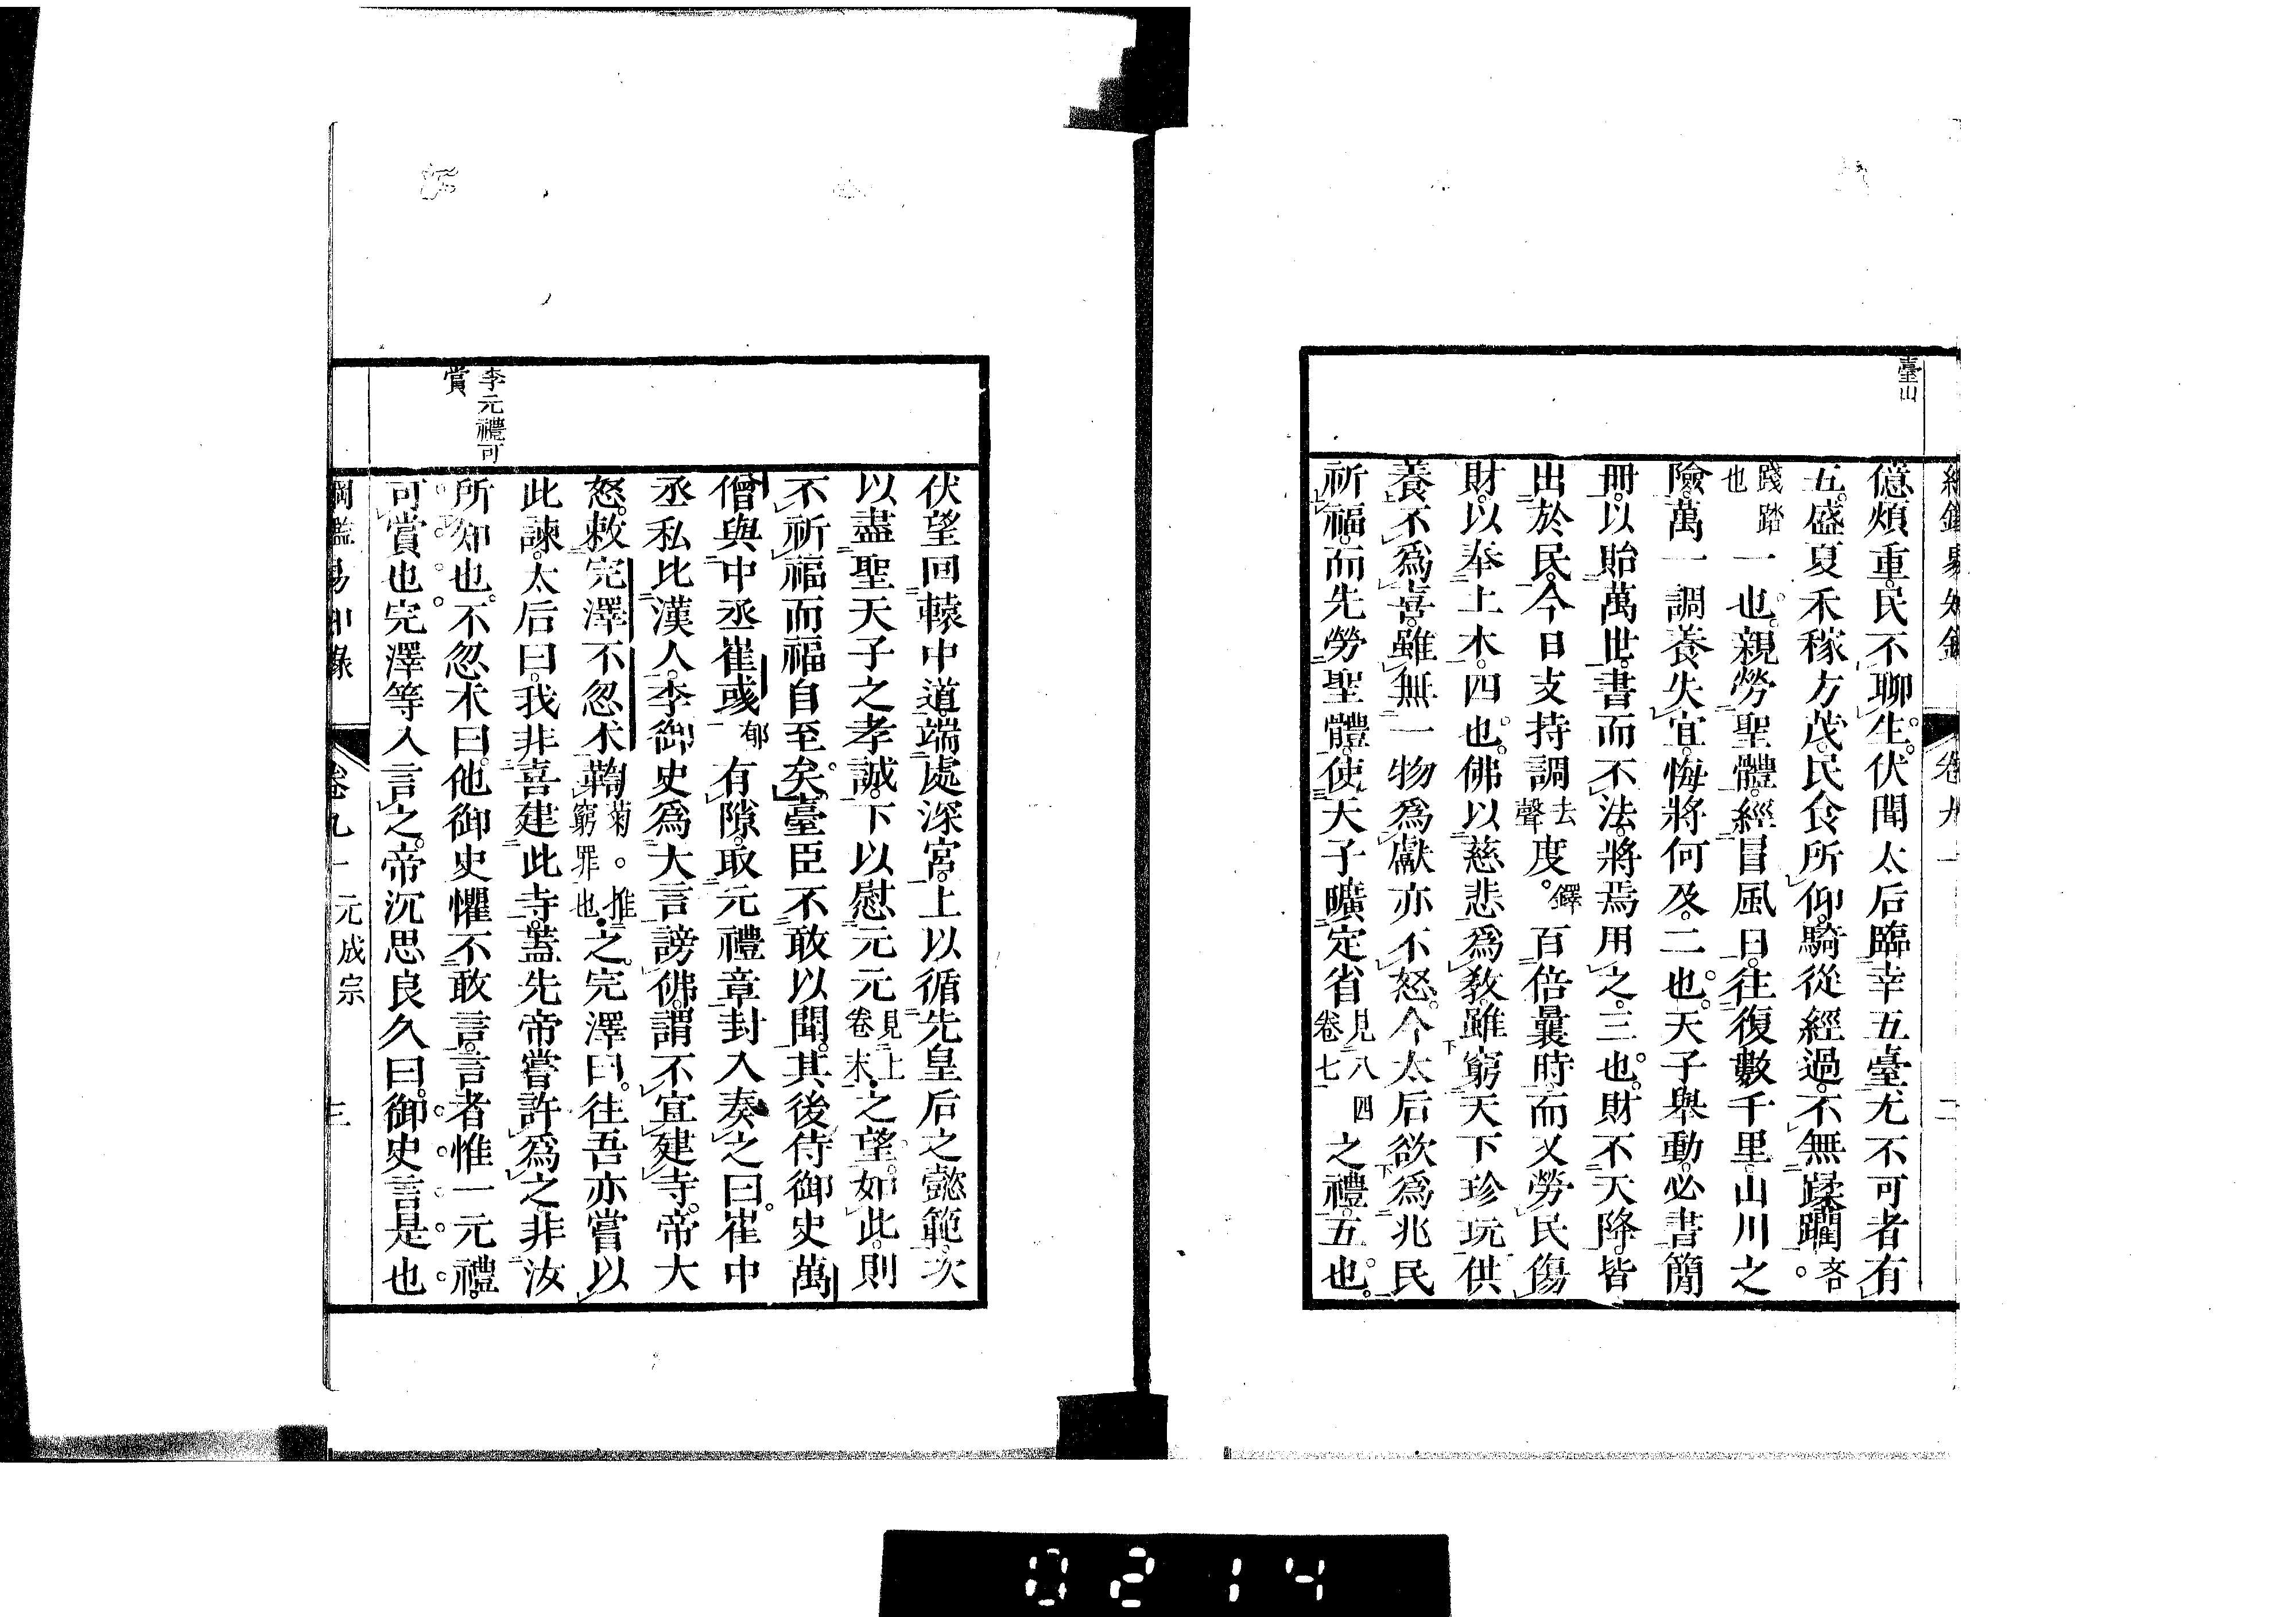 臺山
億煩重。民不聊生。伏聞太后臨幸五臺。尤不可者有
五。盛夏禾稼方茂。民食所仰。騎從經過。不無蹂躪。吝
踐踏也一也。親勞聖體。經冒風日。往復數千里。山川之
險。萬一調養失宜。悔將何及。二也。天子舉動。必書簡
冊。以貽萬世。書而不法。將焉用之。三也。財不天降。皆
出於民。今日支持調去聲度。鐸百倍曩時。而又勞民傷
財。以奉土木。四也。佛以慈悲爲教。雖窮天下珍玩供
養。不爲喜。雖無一物爲獻亦不怒。今太后欲爲兆民
祈福。而先勞聖體。使天子曠定省見八卷七四之禮。五也。
卷九
二
伏望回轅中道。端處深宮。上以循先皇后之懿範。次
以盡聖天子之孝誠。下以慰元元見上卷末之望。如此。則
不祈福而福自至矣。臺臣不敢以聞。其後侍御史萬
僧與中丞崔彧郁有隙。取元禮章封入奏之曰。崔中
丞私比漢人。李御史爲大言謗佛。謂不宜建寺。帝大
怒。敕完澤不忽朮鞫菊。推窮罪也之。完澤曰。往吾亦嘗以
此諫。太后曰。我非喜建此寺。蓋先帝嘗許爲之。非汝
所知也。不忽朮曰。他御史懼不敢言。言者惟一元禮。
可賞也。完澤等入言之。帝沉思良久曰。御史言是也
李元禮可
賞
綱鑑易知錄
卷九一
元成宗
三
0214